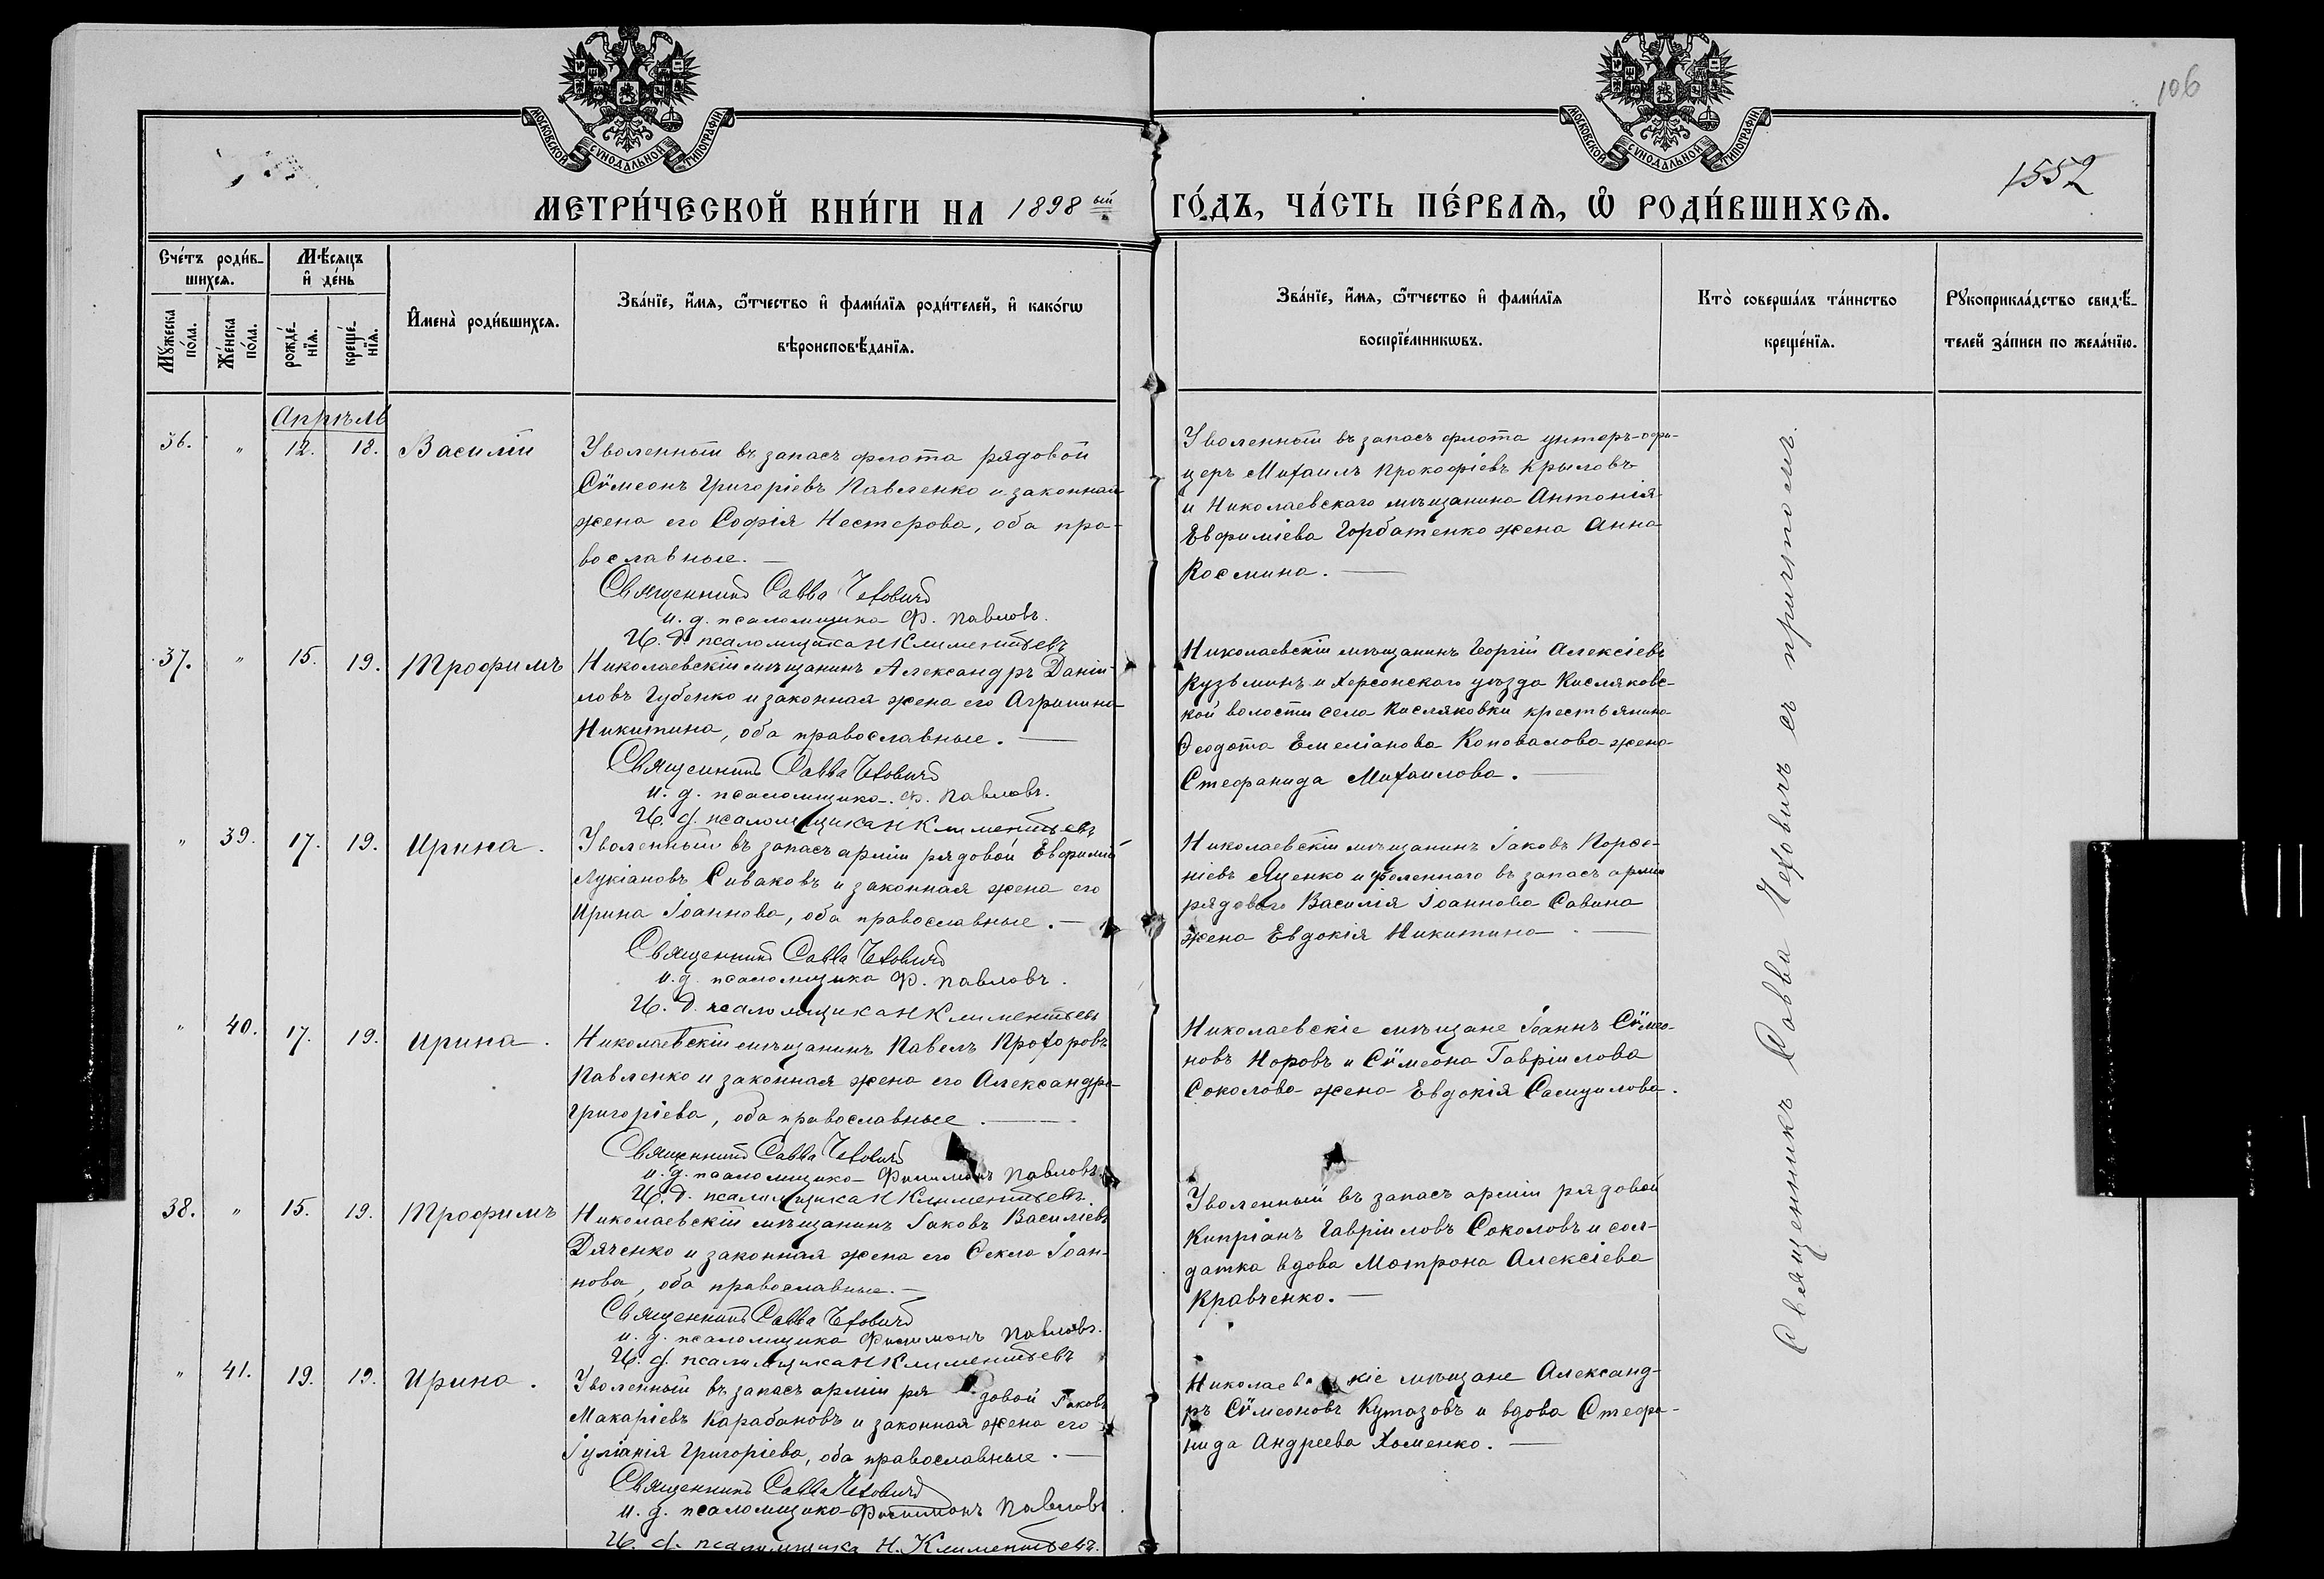 106
МОСКОВСКОЙ СѴНОДАЛЬНОЙ ТИПОГРАФІИ
МОСКОВСКОЙ СѴНОДАЛЬНОЙ ТИПОГРАФІИ
1552
МЕТРИ́ЧЕСКОЙ КНИ́ГИ НА 1898 ый ГО́ДЪ, ЧА́СТЬ ПЕ́РВАѦ, Ѡ҆ РОДИ́ВШИХСѦ.
Сче́тъ роди́в-
шихсѧ.
Мꙋ́жеска
по́ла.
Же́нска
по́ла.
Мѣ́сѧцъ
и҆ де́нь
рожде́-
нїѧ.
креще́-
нїѧ.
И҆мена̀ роди́вшихсѧ.
Зва́нїе, и҆́мѧ, ѻ҆́тчество и҆ фами́лїѧ роди́телей, и҆ како́гѡ
вѣроисповѣ́данїѧ.
Зва́нїе, и҆́мѧ, ѻ҆́тчество и҆ фами́лїѧ
воспрїе́мникѡвъ.
Кто̀ соверша́лъ та́инство
креще́нїѧ.
Рꙋкоприкла́дство свидѣ́-
телей за́писи по жела́нїю.
Апрѣль
36. " 12. 18. Василій
Уволенный въ запасъ флота рядовой
Сѵмеонъ Григоріевъ Павленко и законная
жена его Софія Нестерова, оба пра-
вославные. —
Священникъ Савва Чехович
и. д. псаломщика Ф. Павловъ.
И. д. псаломщика Н Климентьевъ
Уволенный въ запасъ флота унтеръ-офи-
церъ Михаилъ Прокофіевъ Крыловъ
и Николаевскаго мѣщанина Антонія
Евфиміева Горбатенко жена Анна
Космина. —
37. " 15. 19. Трофимъ
Николаевскій мѣщанинъ Александръ Даніи-
ловъ Губенко и законная жена его Агрипина
Никитина, оба православные. —
Священникъ Савва Чехович
и. д. псаломщика Ф. Павловъ.
И. д. псаломщика Н Климентьевъ
Николаевскій мѣщанинъ Георгій Алексіевъ
Кузьминъ и Херсонскаго уѣзда Кисляковс-
кой волости села Кисляковки крестьянина
Ѳеодота Емеліанова Коновалова жена
Стефанида Михаилова. —
" 39. 17. 19. Ирина.
Уволенный въ запасъ арміи рядовой Евфимій
Лукіановъ Сиваковъ и законная жена его
Ирина Іоаннова, оба православные. —
Священникъ Савва Чехович
и. д. псаломщика Ф. Павловъ.
И. д. псаломщика Н Климентьевъ
Николаевскій мѣщанинъ Іаковъ Порфи-
ніевъ Яценко и уволеннаго въ запасъ арміи
рядового Василія Іоаннова Савина
жена Евдокія Никитина. —
" 40. 17. 19. Ирина.
Николаевскій мѣщанинъ Павелъ Прохоровъ
Павленко и законная жена его Александра
Григоріева, оба православные. —
Священникъ Савва Чехович
и. д. псаломщика Филимонъ Павловъ.
И. д. псаломщика Н Климентьевъ
Николаевскіе мѣщане Іоаннъ Сѵмео-
новъ Норовъ и Сѵмеона Гавріилова
Соколова жена Евдокія Самуилова.
38. " 15. 19. Трофимъ
Николаевскій мѣщанинъ Іаковъ Василіевъ
Дяченко и законная жена его Ѳекла Іоан-
нова, оба православные. —
Священникъ Савва Чехович
и. д. псаломщика Филимонъ Павловъ.
И. д. псаломщика Н Климентьевъ
Уволенный въ запасъ арміи рядовой
Кипріанъ Гавріиловъ Соколовъ и сол-
датка вдова Мотрона Алексіева
Кравченко. —
" 41. 19. 19. Ирина.
Уволенный въ запасъ арміи рядовой Іаковъ
Макаріевъ Карабановъ и законная жена его
Іуліанія Григоріева, оба православные. —
Священникъ Савва Чехович
и. д. псаломщика Филимонъ Павловъ
И. д. псаломщика Н. Климентьевъ.
Николаевскіе мѣщане Александ-
ръ Сѵмеоновъ Кутазовъ и вдова Стефа-
нида Андреева Хоменко. —
Священникъ Савва Чеховичъ съ причтомъ.